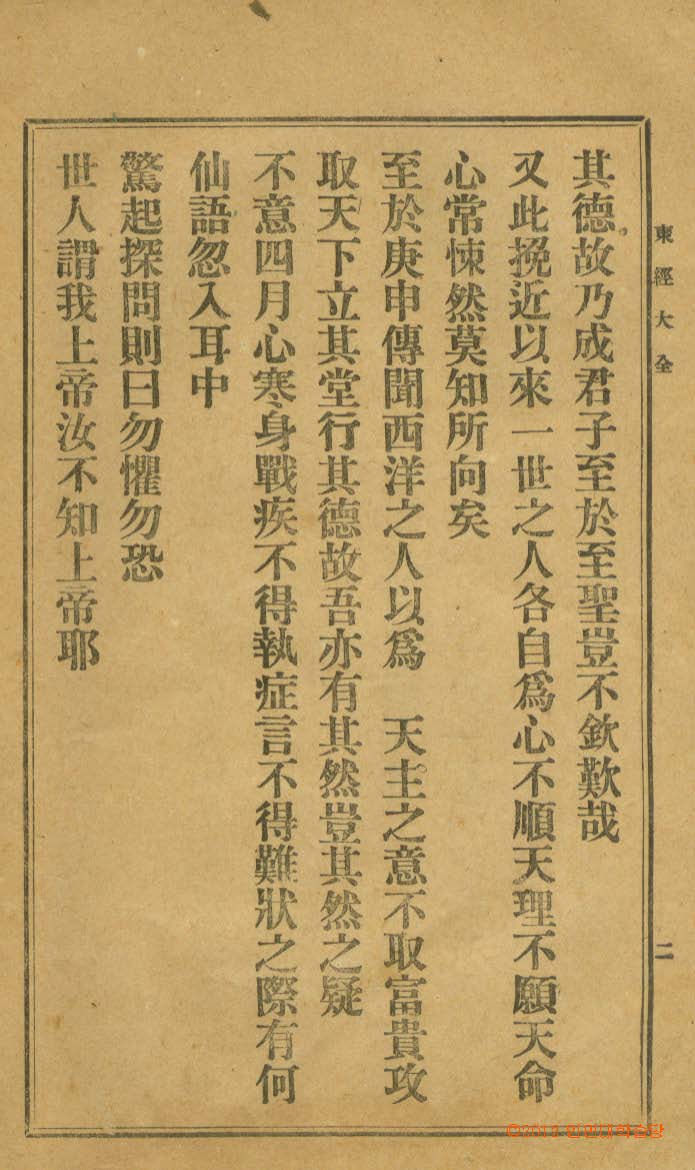 東經大全
二
其德故乃成君子至於至聖豈不欽歎哉
又此挽近以來一世之人各自爲心不順天理不願天命
心常悚然莫知所向矣
至於庚申傳聞西洋之人以爲　天主之意不取富貴攻
取天下立其堂行其德故吾亦有其然豈其然之疑
不意四月心寒身戰疾不得執症言不得難狀之際有何
仙語忽入耳中
驚起探問則曰勿懼勿恐
世人謂我上帝汝不知上帝耶